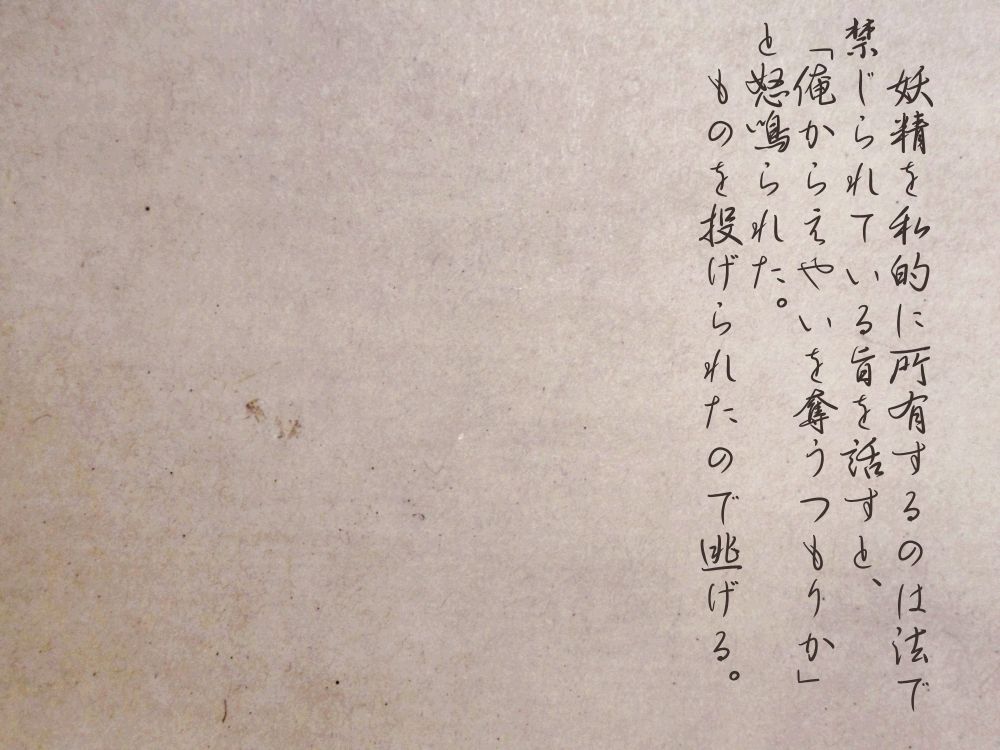 妖精を私的に所有するのは法で
禁じられている旨を話すと、
「俺からえやいを奪うつもりか」
と怒鳴られた。
ものを投げられたので逃げる。